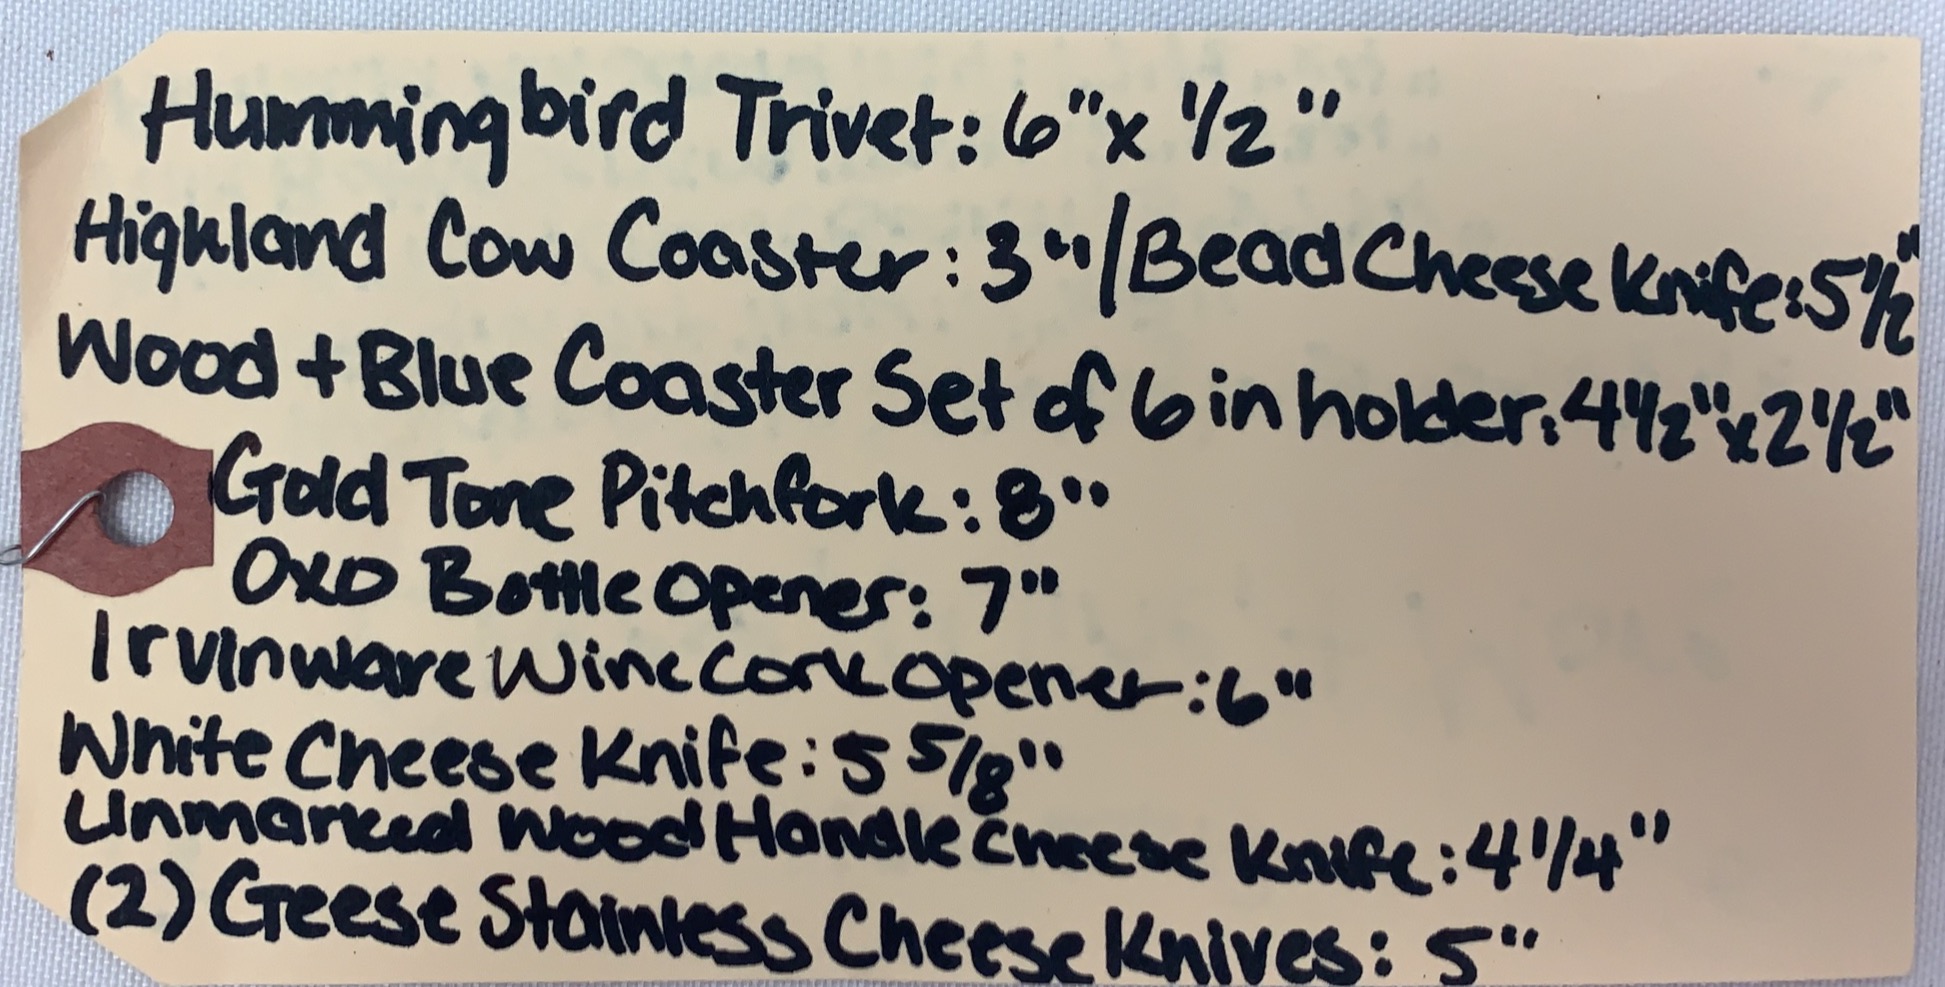 Hummingbird Trivet: 6" x 1/2"
Highland Cow Coaster: 3" / Bead Cheese Knife: 5 1/2"
Wood + Blue Coaster Set of 6 in holder: 4 1/2" x 2 1/2"
Gold Tone Pitchfork: 8"
OXO Bottle Opener: 7"
Irvinware Wine Cork Opener: 6"
White Cheese Knife: 5 5/8"
Unmarked Wood Handle Cheese Knife: 4 1/4"
(2) Geese Stainless Cheese Knives: 5"